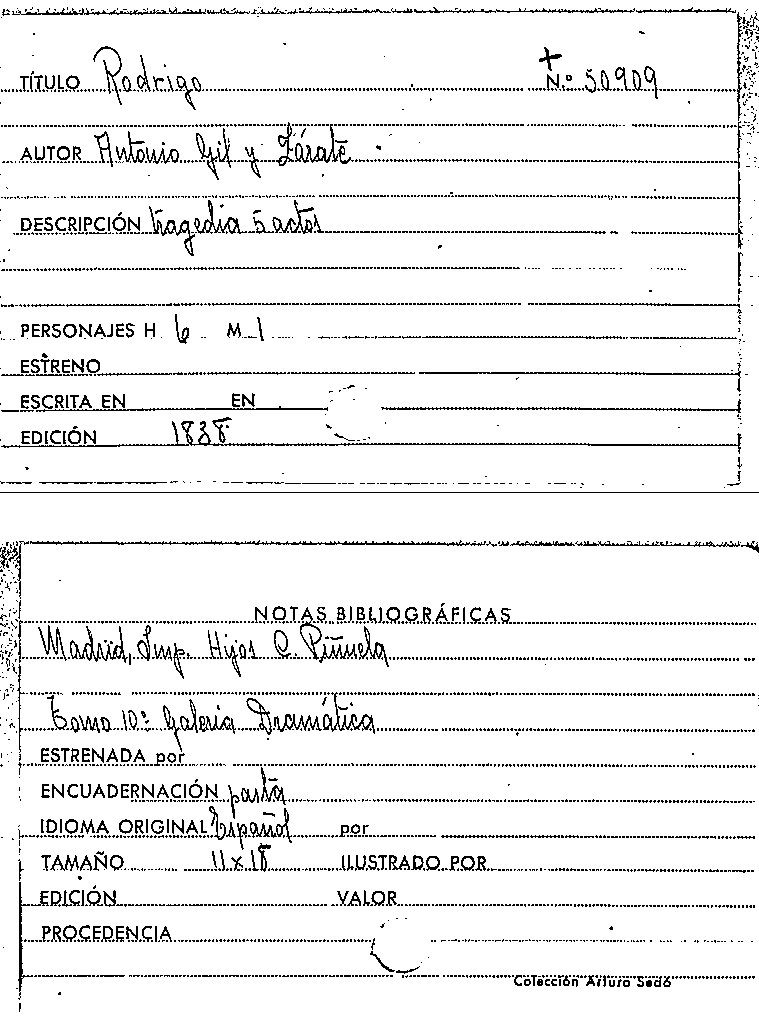 TÍTULO Rodrigo + N.º 50909
AUTOR Antonio Gil y Zárate
DESCRIPCIÓN tragedia 5 actos
PERSONAJES H 6 M 1
ESTRENO
ESCRITA EN EN
EDICIÓN 1838
NOTAS BIBLIOGRÁFICAS
Madrid, Imp. Hijos C. Piñuela
Tomo 10º Galeria Dramática
ESTRENADA por
ENCUADERNACIÓN pasta
IDIOMA ORIGINAL Español por
TAMAÑO 11 x 18 ILUSTRADO POR
EDICIÓN VALOR
PROCEDENCIA
Colección Arturo Sedó